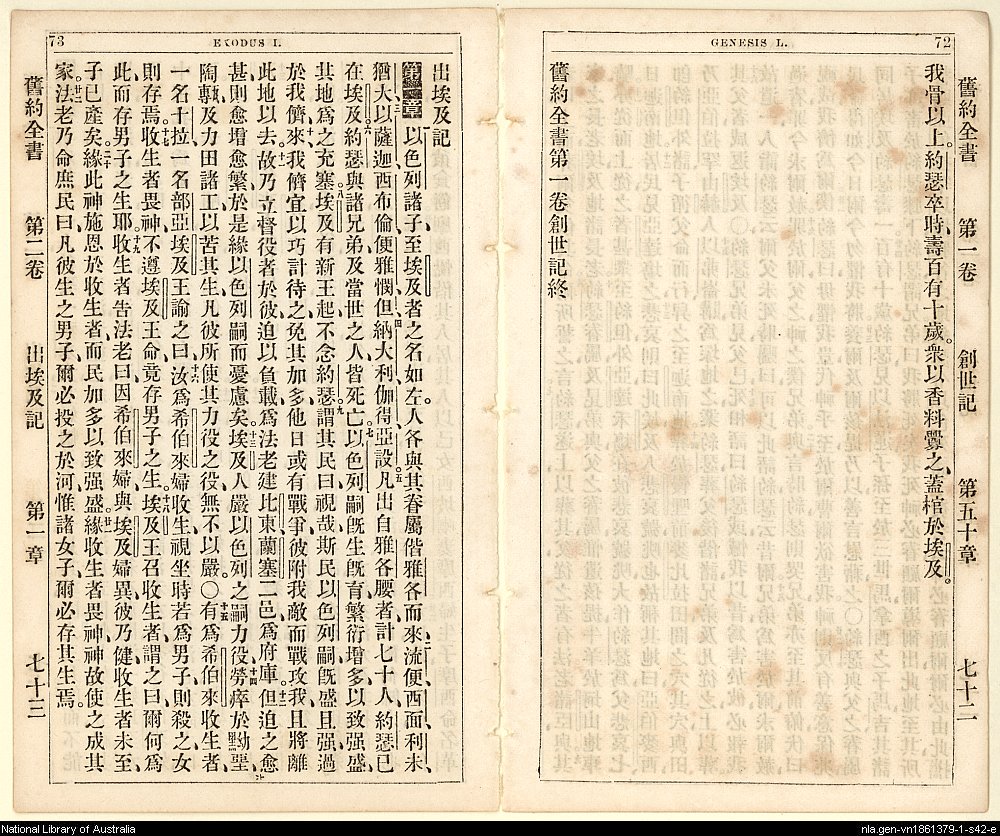 GENESIS L.
72
舊約全書 第一卷 創世記 第五十章 七十二
我骨以上。約瑟卒時、壽百有十歲。衆以香料釁之、蓋棺於埃及。
舊約全書第一卷創世記終
EXODUS I.
73
出埃及記
第一章 以色列諸子至埃及者之名如左。人各與其眷屬偕雅各而來、流便、西面、利未、
猶大、以薩迦、西布倫、便雅憫、但、納大利、伽得、亞設、凡出自雅各腰者、計七十人、約瑟已
在埃及。約瑟與諸兄弟及當世之人皆死亡。以色列嗣旣生旣育、繁衍增多、以致强盛、
其地爲之充塞。埃及有新王起、不念約瑟、謂其民曰、視哉、斯民以色列嗣旣盛且强、過
於我儕。來、我儕宜以巧計待之、免其加多、他日或有戰爭、彼附我敵而戰攻我、且將離
此地以去。故乃立督役者於彼、迫以負載、爲法老建比東蘭塞二邑爲府庫。但迫之愈
甚、則愈增愈繁、於是緣以色列嗣而憂慮矣。埃及人嚴以色列之嗣力役、勞瘁於黝堊
陶甎、及力田諸工、以苦其生、凡彼所使其力役之役、無不以嚴。○有爲希伯來收生者、
一名十拉、一名部亞、埃及王諭之曰、汝爲希伯來婦收生、視坐時、若爲男子則殺之、女
則存焉。收生者畏神、不遵埃及王命、竟存男子之生。埃及王召收生者、謂之曰、爾何爲
此、而存男子之生耶。收生者告法老曰、因希伯來婦與埃及婦異、彼乃健、收生者未至、
子已產矣。緣此神施恩於收生者、而民加多、以致强盛。緣收生者畏神、神故使之成其
家。法老乃命庶民曰、凡彼生之男子、爾必投之於河、惟諸女子、爾必存其生焉。
舊約全書 第二卷 出埃及記 第一章 七十三
National Library of Australia
nla.gen-vn1861379-1-s42-e